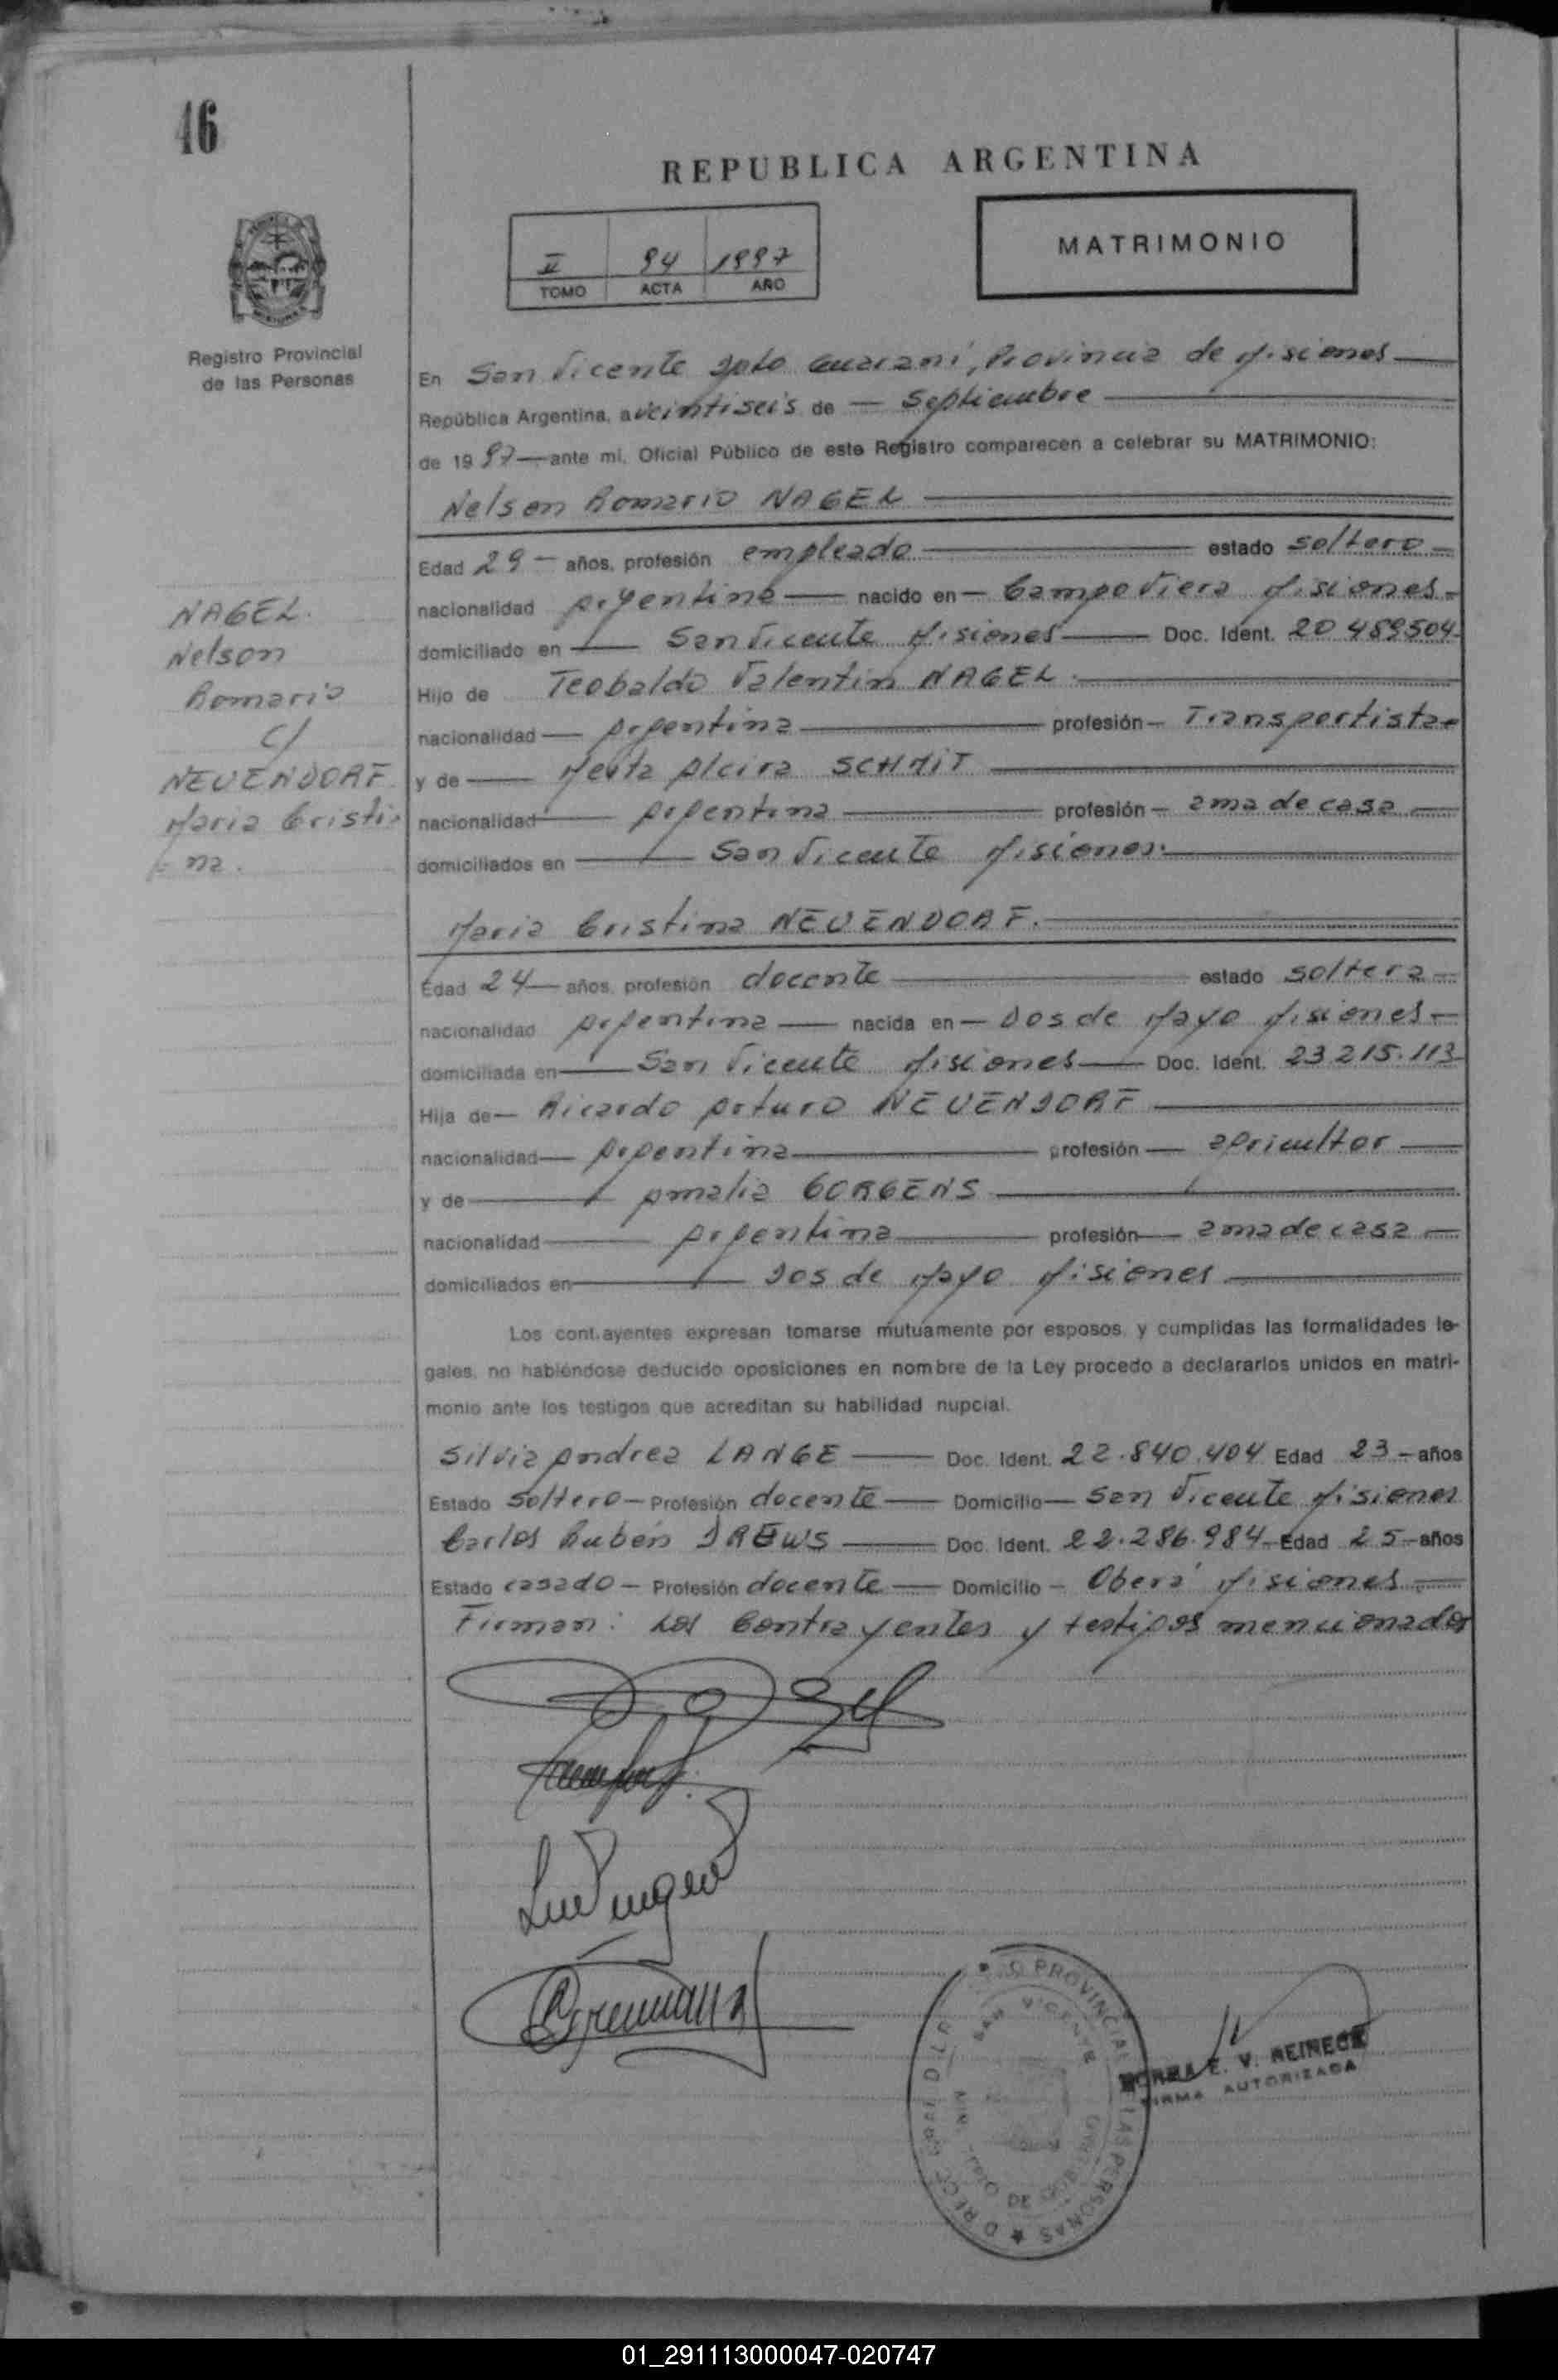 46
REPUBLICA ARGENTINA
II 94 1997
TOMO ACTA AÑO
MATRIMONIO
Registro Provincial
de las Personas
NAGEL.
Nelson
Romario
c/
NEUENDORF
Maria Cristi-
na.
En San Vicente Dpto Guaraní, Provincia de Misiones
República Argentina, a veintiseis de Septiembre
de 1997 ante mi, Oficial Público de este Registro comparecen a celebrar su MATRIMONIO:
Nelson Romario NAGEL
Edad 29 años, profesión empleado estado soltero
nacionalidad Argentina nacido en Campo Viera Misiones
domiciliado en San Vicente Misiones Doc. Ident. 20 489504
Hijo de Teobaldo Valentin NAGEL
nacionalidad Argentina profesión Transportista
y de Alcira SCHMIT
nacionalidad Argentina profesión ama de casa
domiciliados en San Vicente Misiones.
Maria Cristina NEUENDORF.
Edad 24 años, profesión docente estado soltera
nacionalidad Argentina nacida en Dos de Mayo Misiones
domiciliada en San Vicente Misiones Doc. Ident. 23 215.113
Hija de Ricardo Arturo NEUENDORF
nacionalidad Argentina profesión agricultor
y de Amalia GORGENS
nacionalidad Argentina profesión ama de casa
domiciliados en Dos de Mayo Misiones
Los contrayentes expresan tomarse mutuamente por esposos, y cumplidas las formalidades le-
gales, no habiéndose deducido oposiciones en nombre de la Ley procedo a declararlos unidos en matri-
monio ante los testigos que acreditan su habilidad nupcial.
Silvia Andrea LANGE Doc. Ident. 22.840.404 Edad 23 años
Estado Soltero Profesión docente Domicilio San Vicente Misiones
Carlos Rubén DREWS Doc. Ident. 22.286.984 Edad 25 años
Estado casado Profesión docente Domicilio Oberá Misiones
Firman: Los Contrayentes y testigos mencionados
PROVINCIAL DE LAS PERSONAS
SAN VICENTE
NORMA E. V. REINECK
FIRMA AUTORIZADA
01_291113000047-020747